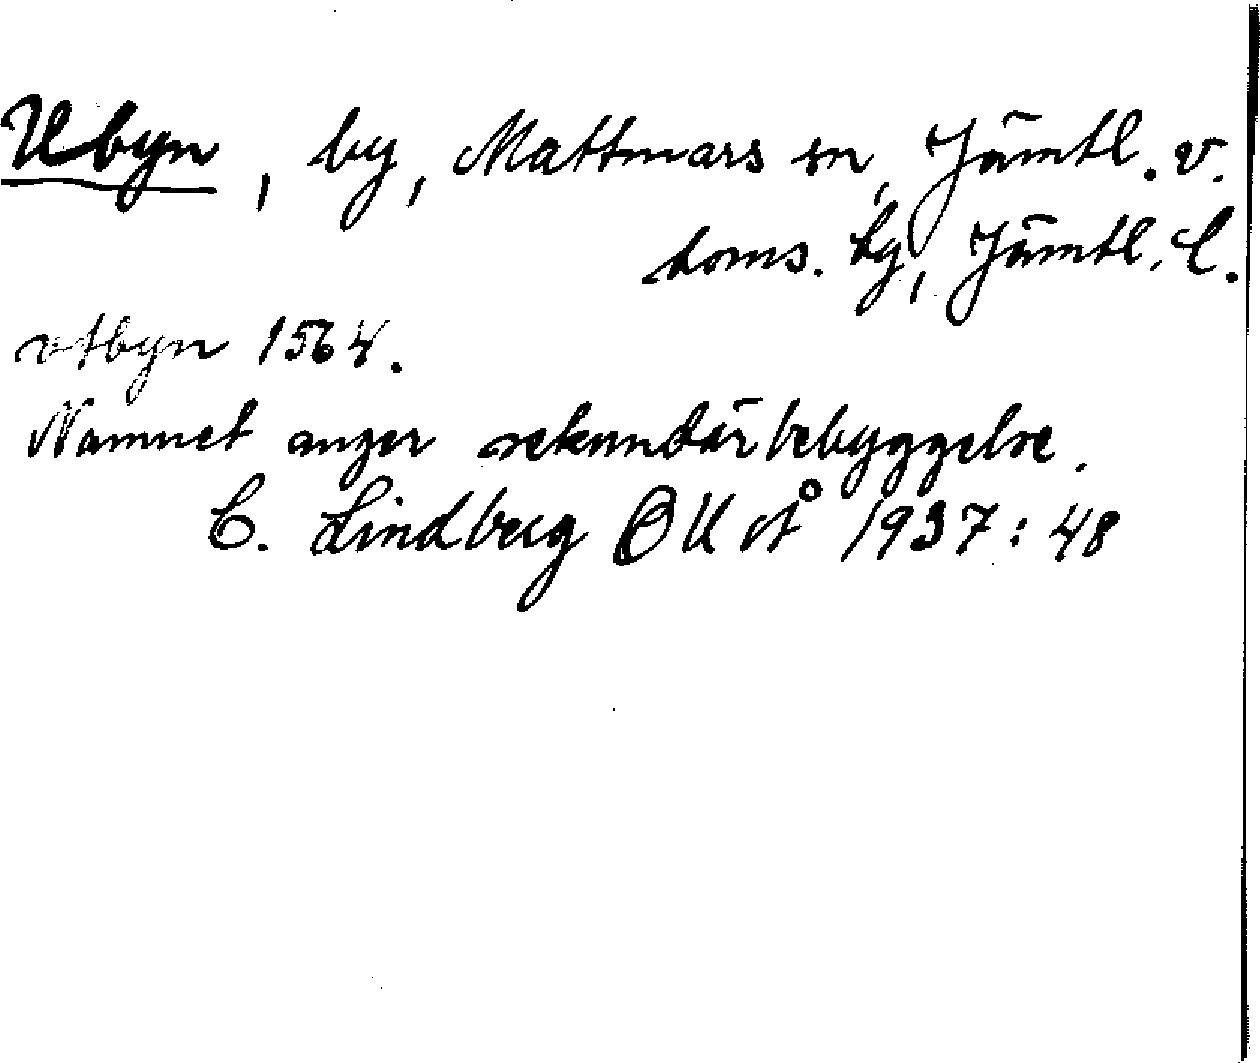 Ubyn, by, Mattmars sn, Jämtl. v.
doms. tg, Jämtl. l.
vtbyn 1564.
Namnet anger sekundärbebyggelse.
C. Lindberg ÖUÅ 1937: 48